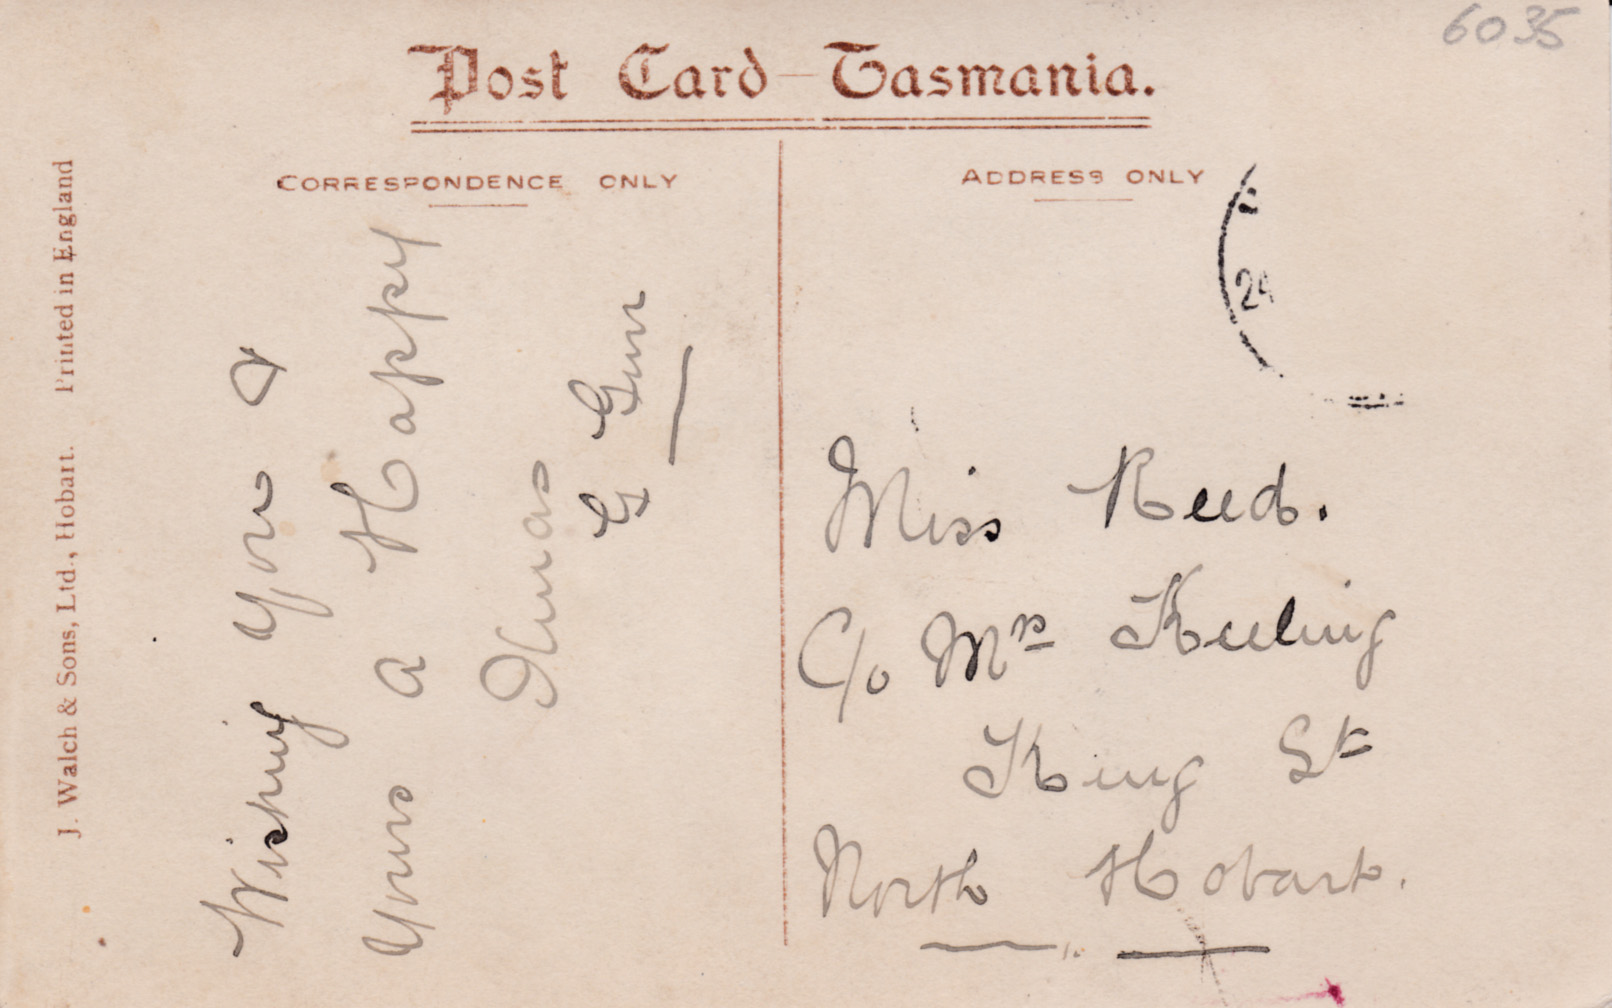 6035
Post Card – Tasmania.
CORRESPONDENCE ONLY
ADDRESS ONLY
J. Walch & Sons, Ltd., Hobart. Printed in England
24
Wishing you &
yours a Happy
Xmas
G Gunn
Miss Reed.
C/o Mrs Keeling
King St
North Hobart.